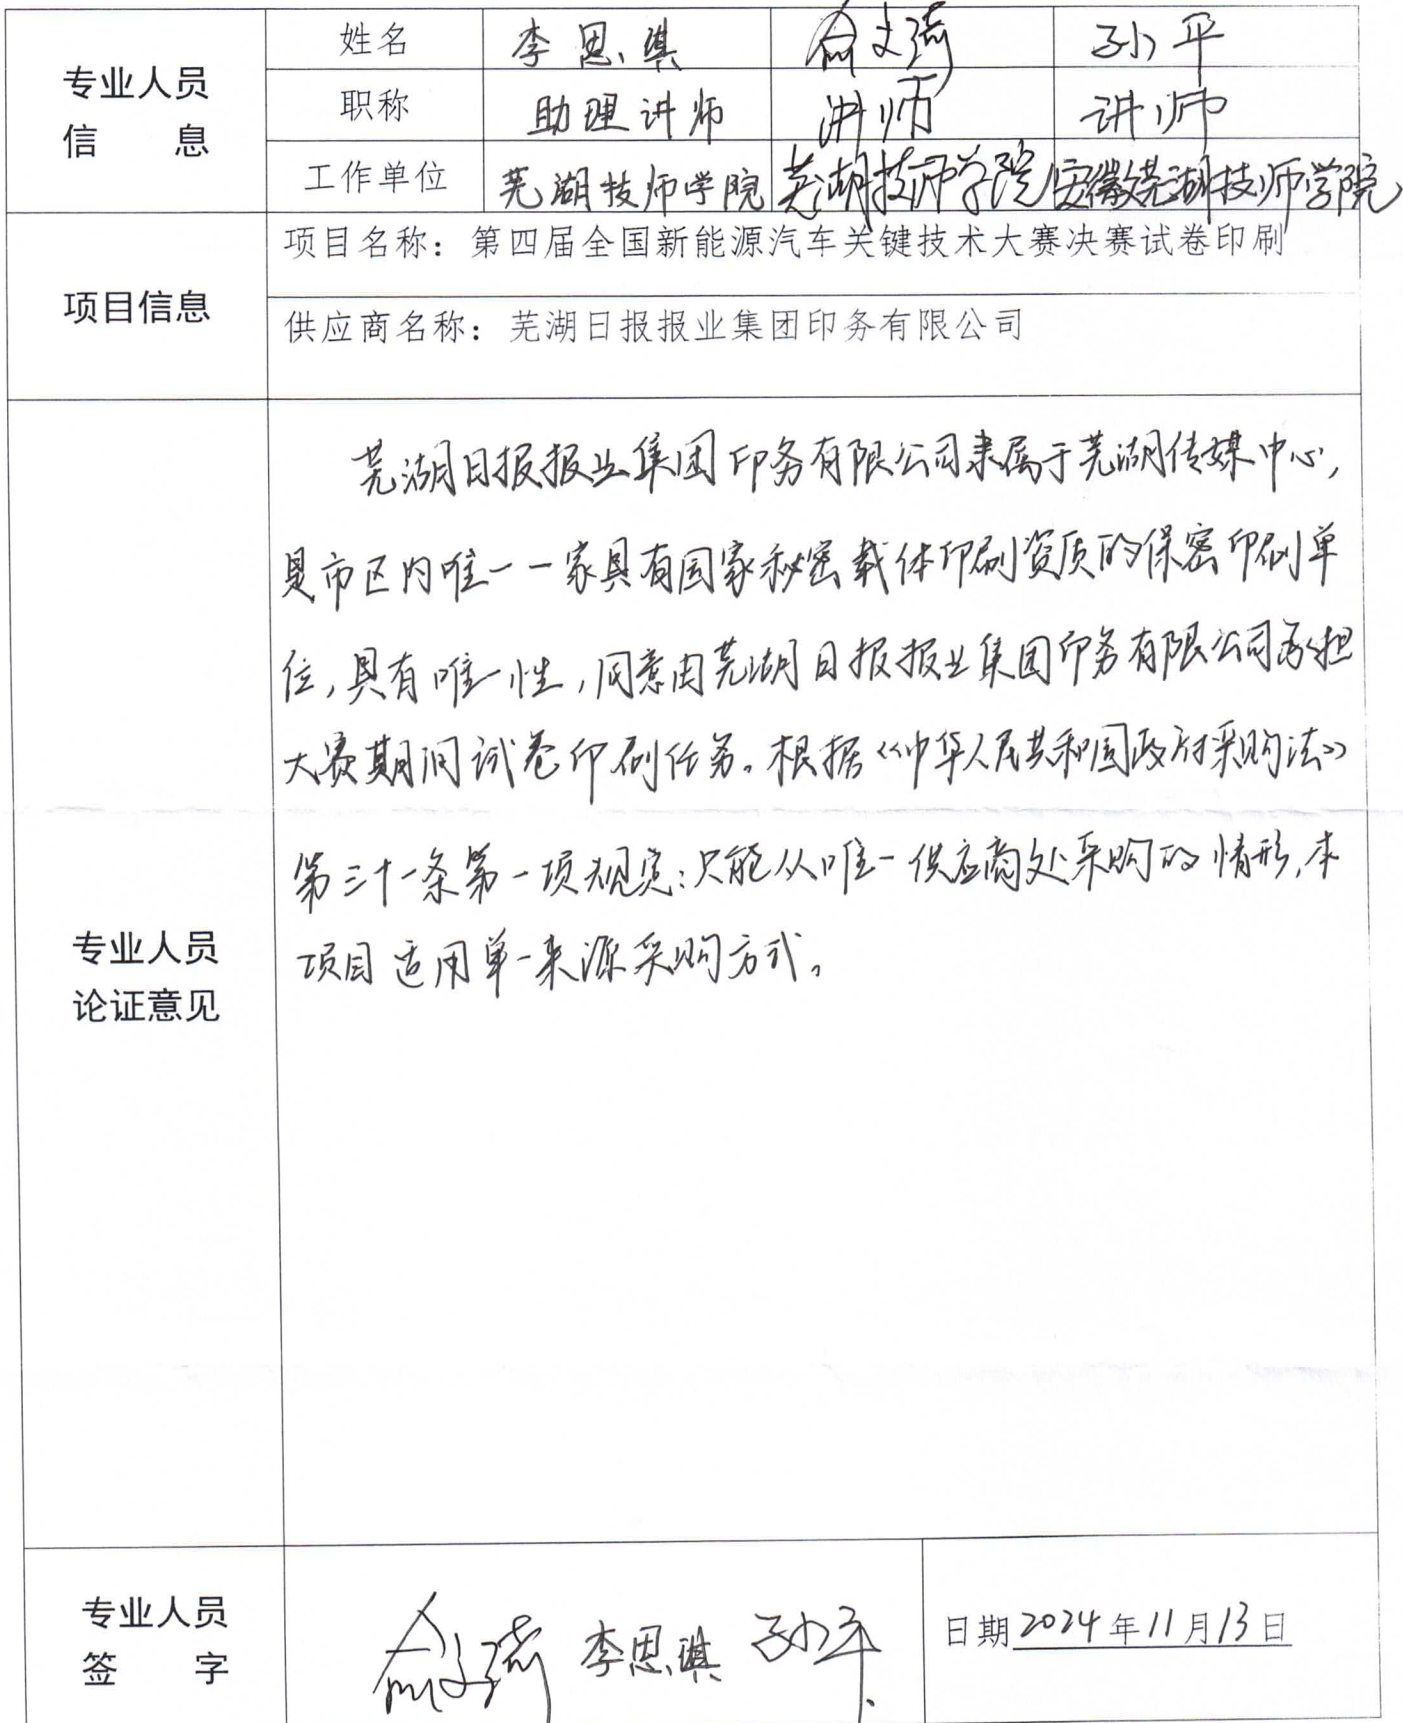 专业人员
信 息
姓名 李思琪 俞文琦 孙平
职称 助理讲师 讲师 讲师
工作单位 芜湖技师学院 芜湖技师学院 安徽芜湖技师学院
项目信息
项目名称：第四届全国新能源汽车关键技术大赛决赛试卷印刷
供应商名称：芜湖日报报业集团印务有限公司
专业人员
论证意见
芜湖日报报业集团印务有限公司隶属于芜湖传媒中心，
是市区内唯一一家具有国家秘密载体印刷资质的保密印刷单
位，具有唯一性，同意由芜湖日报报业集团印务有限公司承担
大赛期间试卷印刷任务。根据《中华人民共和国政府采购法》
第三十一条第一项规定：只能从唯一供应商处采购的情形，本
项目适用单一来源采购方式。
专业人员
签 字
俞文琦 李思琪 孙平
日期2024年11月13日